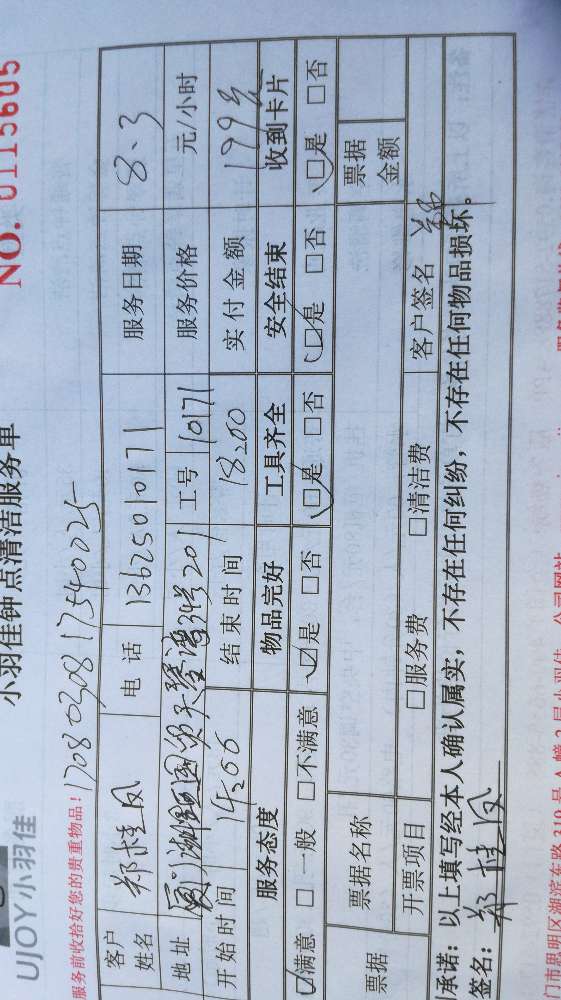 UJOY小羽佳
小羽佳钟点清洁服务单
NO. 0115605
服务前收拾好您的贵重物品! 1708030817540025
客户姓名 郑桂凤 电话 13625010171 服务日期 8、3
地址 34号201 工号 10171 服务价格 元/小时
开始时间 14:00 结束时间 18:00 实付金额 199元
服务态度 物品完好 工具齐全 安全结束 收到卡片
☑满意 □一般 □不满意 ☑是 □否 ☑是 □否 ☑是 □否 ☑是 □否
票据 票据名称 票据金额
开票项目 □服务费 □清洁费 客户签名
承诺:以上填写经本人确认属实,不存在任何纠纷,不存在任何物品损坏。
签名:郑桂凤
门市思明区湖滨东路319号A幢2层小羽佳 公司网站